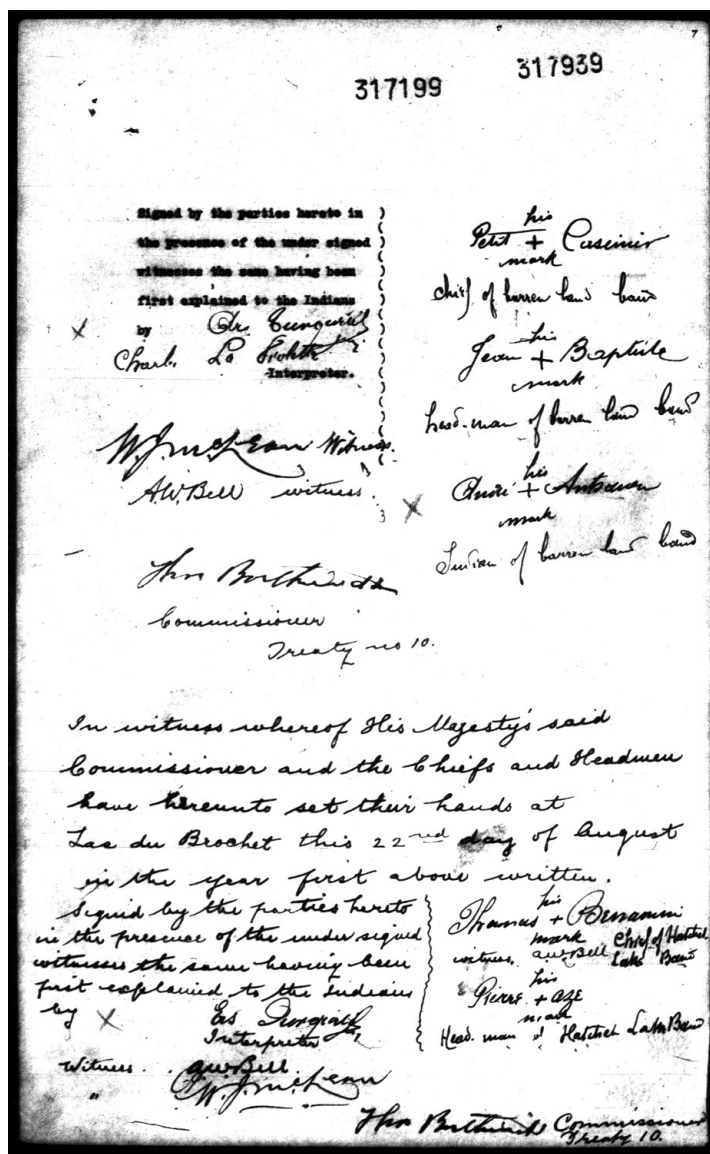 7
317199
317939
Signed by the parties hereto in
the presence of the under signed
witnesses the same having been
first explained to the Indians
by
Charl.
Interpreter.
W. J. McLean Witness.
A.W. Bell witness.
Thos Borthwick
Commissioner
Treaty no 10.
his
Petit + Casimir
mark
chief of barren land band
his
Jean + Baptiste
mark
head-man of barren land band
his
André + Antsanen
mark
Indian of barren land band
In witness whereof His Majesty's said
Commissioner and the Chiefs and Headmen
have hereunto set their hands at
Lac du Brochet this 22nd day of August
in the year first above written.
Signed by the parties hereto
in the presence of the under signed
witnesses the same having been
first explained to the Indians
by
Interpreter
Witness. A.W. Bell
" W. J. McLean
his
Thomas + Benaouni
mark Chief of Hatchet
witness AW Bell Lake Band
his
Pierre + aze
mark
Head. man of Hatchet Lake Band
Thos Borthwick Commissioner
Treaty 10.